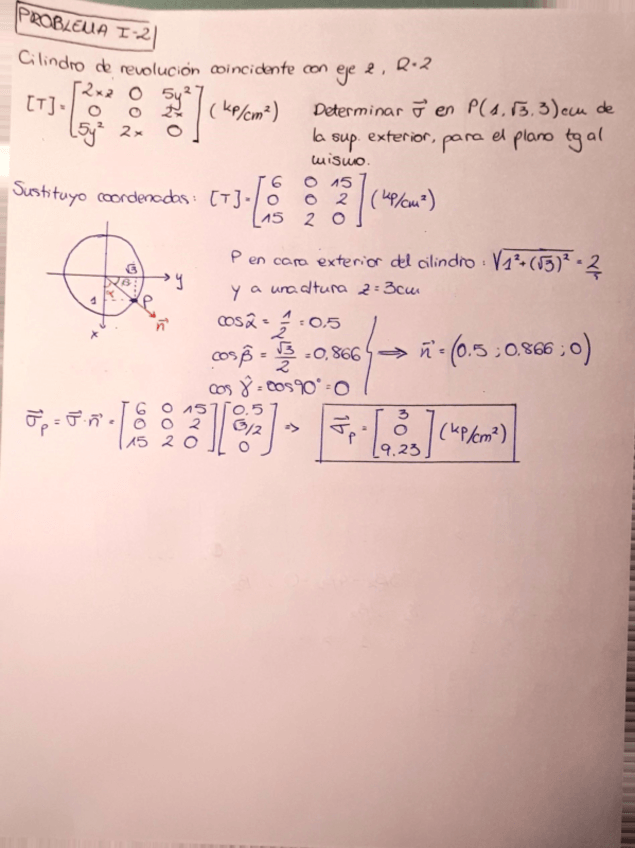 PROBLEMA I-2
Cilindro de revolución coincidente con eje z, R=2
[T]= [2xz 0 5y²; 0 0 2x; 5y² 2x 0] (kp/cm²) Determinar σ⃗ en P(1,√3,3)cm de
la sup. exterior, para el plano tg al
mismo.
Sustituyo coordenadas: [T]= [6 0 15; 0 0 2; 15 2 0] (kp/cm²)
P en cara exterior del cilindro: √(1²+(√3)²) = 2
y a una altura z=3cm
√3
β
α
1
P
y
x
n⃗
cos α̂ = 1/2 = 0,5
cos β̂ = √3/2 = 0,866 ⟹ n⃗ = (0.5 ; 0.866 ; 0)
cos γ̂ = cos 90° = 0
σ⃗p = σ⃗·n⃗ = [6 0 15; 0 0 2; 15 2 0] [0.5; √3/2; 0] ⇒ σ⃗p = [3; 0; 9.23] (kp/cm²)